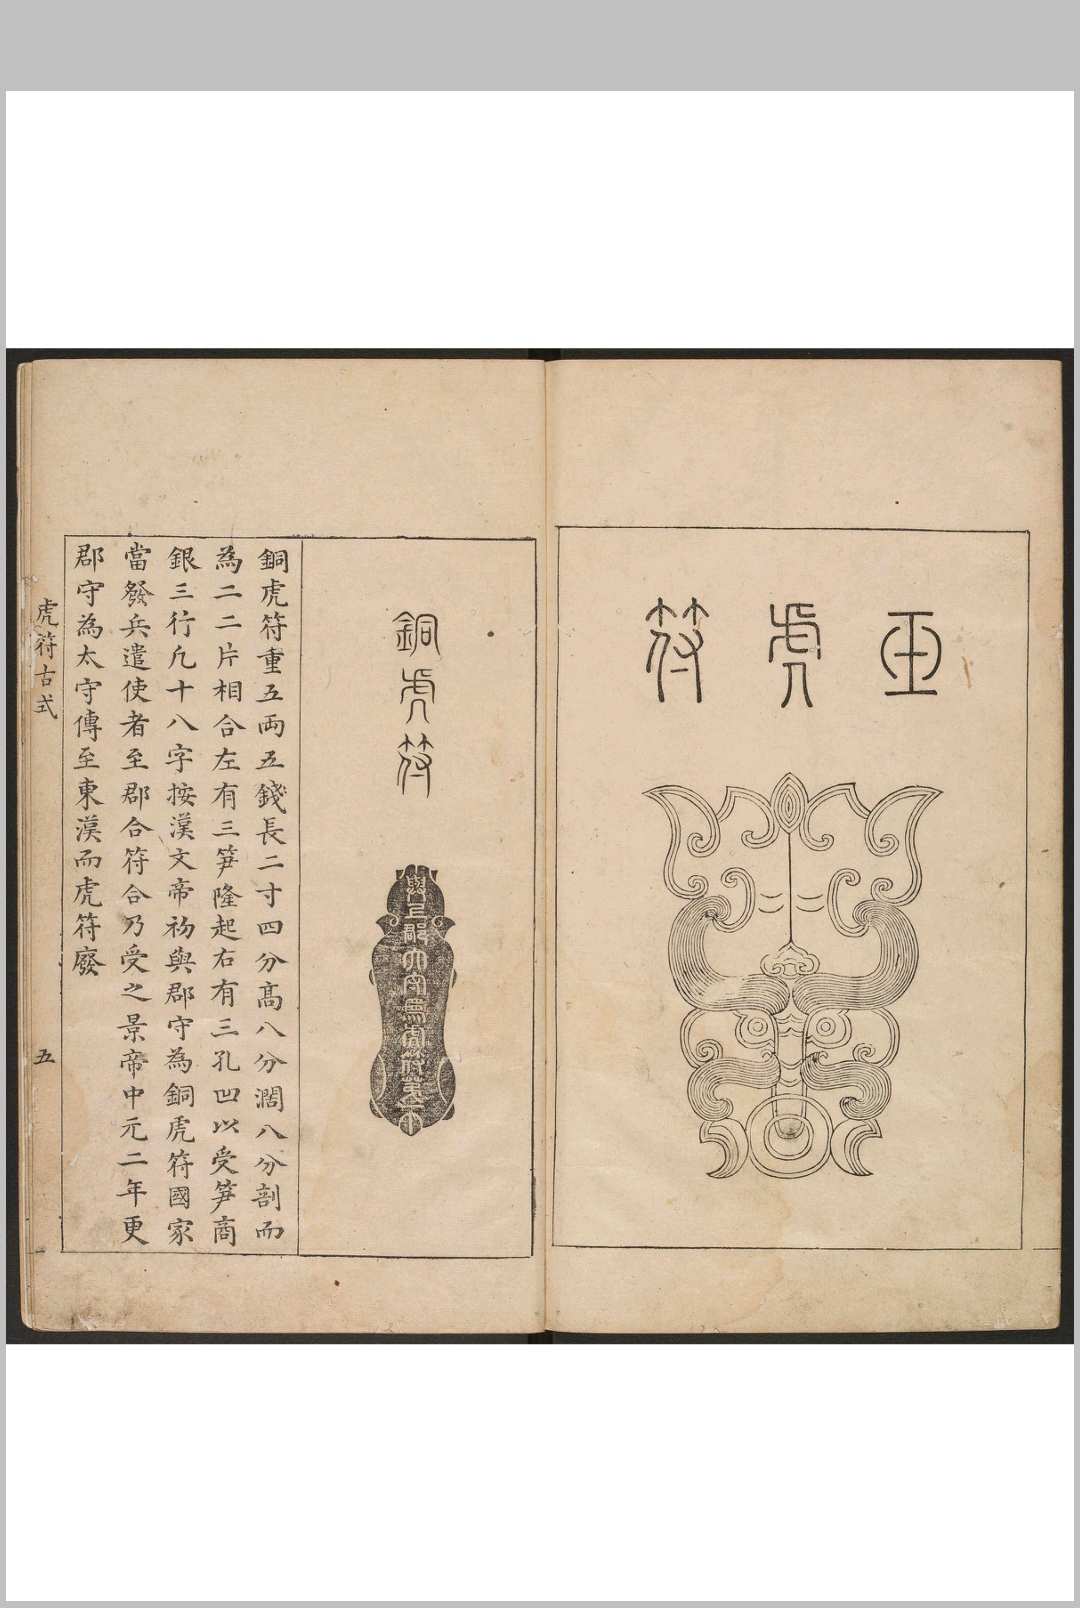 玉虎符
銅虎符
與上郡太守爲虎符第二
銅虎符重五両五錢長二寸四分高八分濶八分剖而
為二二片相合左有三笋隆起右有三孔凹以受笋商
銀三行凡十八字按漢文帝初與郡守為銅虎符國家
當發兵遣使者至郡合符合乃受之景帝中元二年更
郡守為太守傳至東漢而虎符廢
虎符古式
五